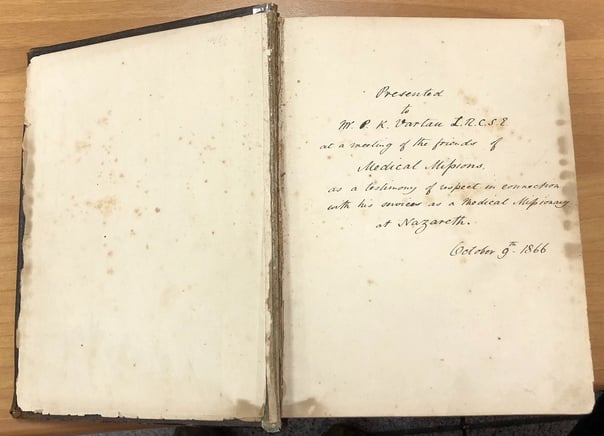 Presented
to
Mr. P. K. Vartan L.R.C.S.E
at a meeting of the friends of
Medical Missions,
as a testimony of respect in connection
with his services as a Medical Missionary
at Nazareth.
October 9th 1866